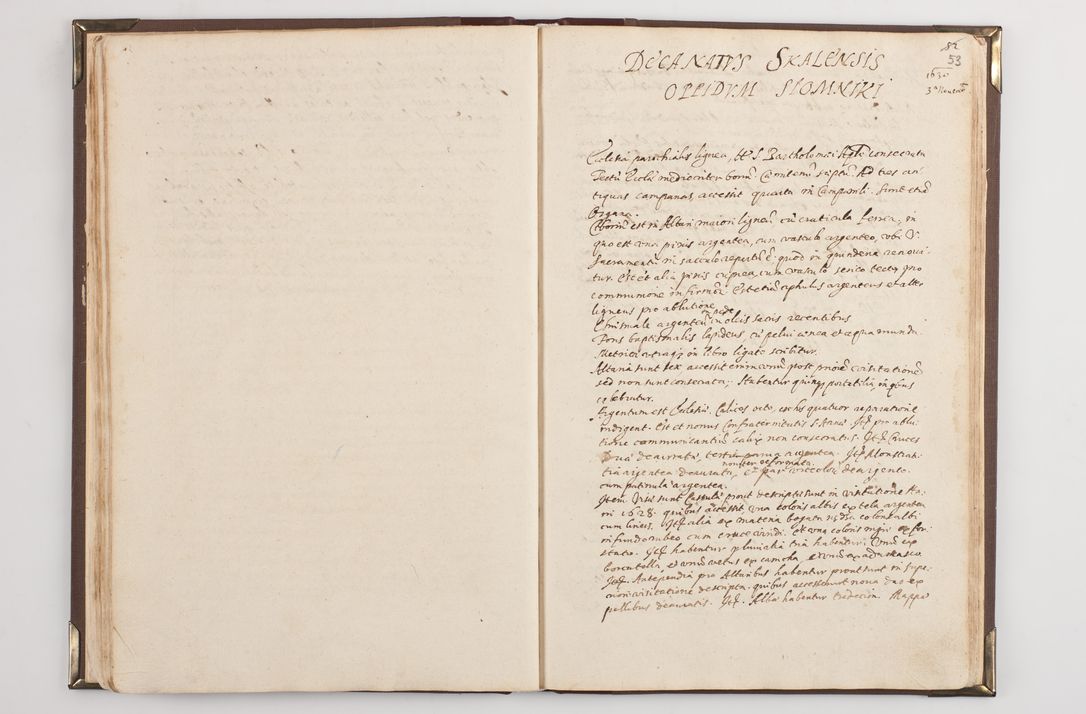 82
53
DECANATVS SKALENSIS
OPPIDVM SLOMNIKI
1630
Ecclesia parochialis lignea, tit S. Bartholomei Apli consecrata
Tectū Ecclae mediocriter bonū Cœmiteriū septū. Ad tres an
tiquas campanas, accessit quarta in Campanili. Sunt etiā
Organa.
Ciboriū est in Altari maiori ligneū cū craticula ferrea, in
quo est una pixis argentea, cum vasculo argenteo, ubi V.
Sacramentū in sacculo repertū ē quod in quindena renova
tur. Est et alia pixis cuprea, cum vasculo serico tecta pro
communione infirmorū. Est etiā cyphulus argenteus et alter
ligneus pro ablutione.
Chrismale argenteū in quo oleis sacris recentibus
Fons baptismalis lapideus, cū pelvi ænea et aqua munda
Metrica utraq in libro ligato scribitur.
Altaria sunt sex accessit enim unū post priorē visitationē
sed non sunt consecrata. Habentur quinq portatilia, in qbus
celebratur.
Argentum est Ecclesiæ. Calices octo, ex his quatuor reparatione
indigent. Est et novus Confraternitatis S. Annæ. Itē pro ablu
tione communicantiū calix non consecratus. Itē Cruces
Duæ deauratæ, tertia parva argentea. Itē Monstran
noviter reformata
tia argentea deaurata, et par urceolorū de argento
cum patinula argentea.
Item. Visæ sunt Casulæ prout descriptæ sunt in visitatione An
ni 1628. quibus accessit una coloris albi ex tela argentea
cum lineis. Itē alia ex materia bagazia coloris albi
in fundo rubeo cum cruce viridi. Et una coloris nigri ex for
stato. Itē habentur pluvialia tria habentur. Unū ex
borcatella, et unū vetus ex camcha, et unū ex adamasco
Itē. Antependia pro Altaribus habentur prout sunt in supe
riori visitatione descripta. quibus accesserunt nova duo ex
pellibus deauratis. Itē. Albæ habentur tredecim. Mappæ